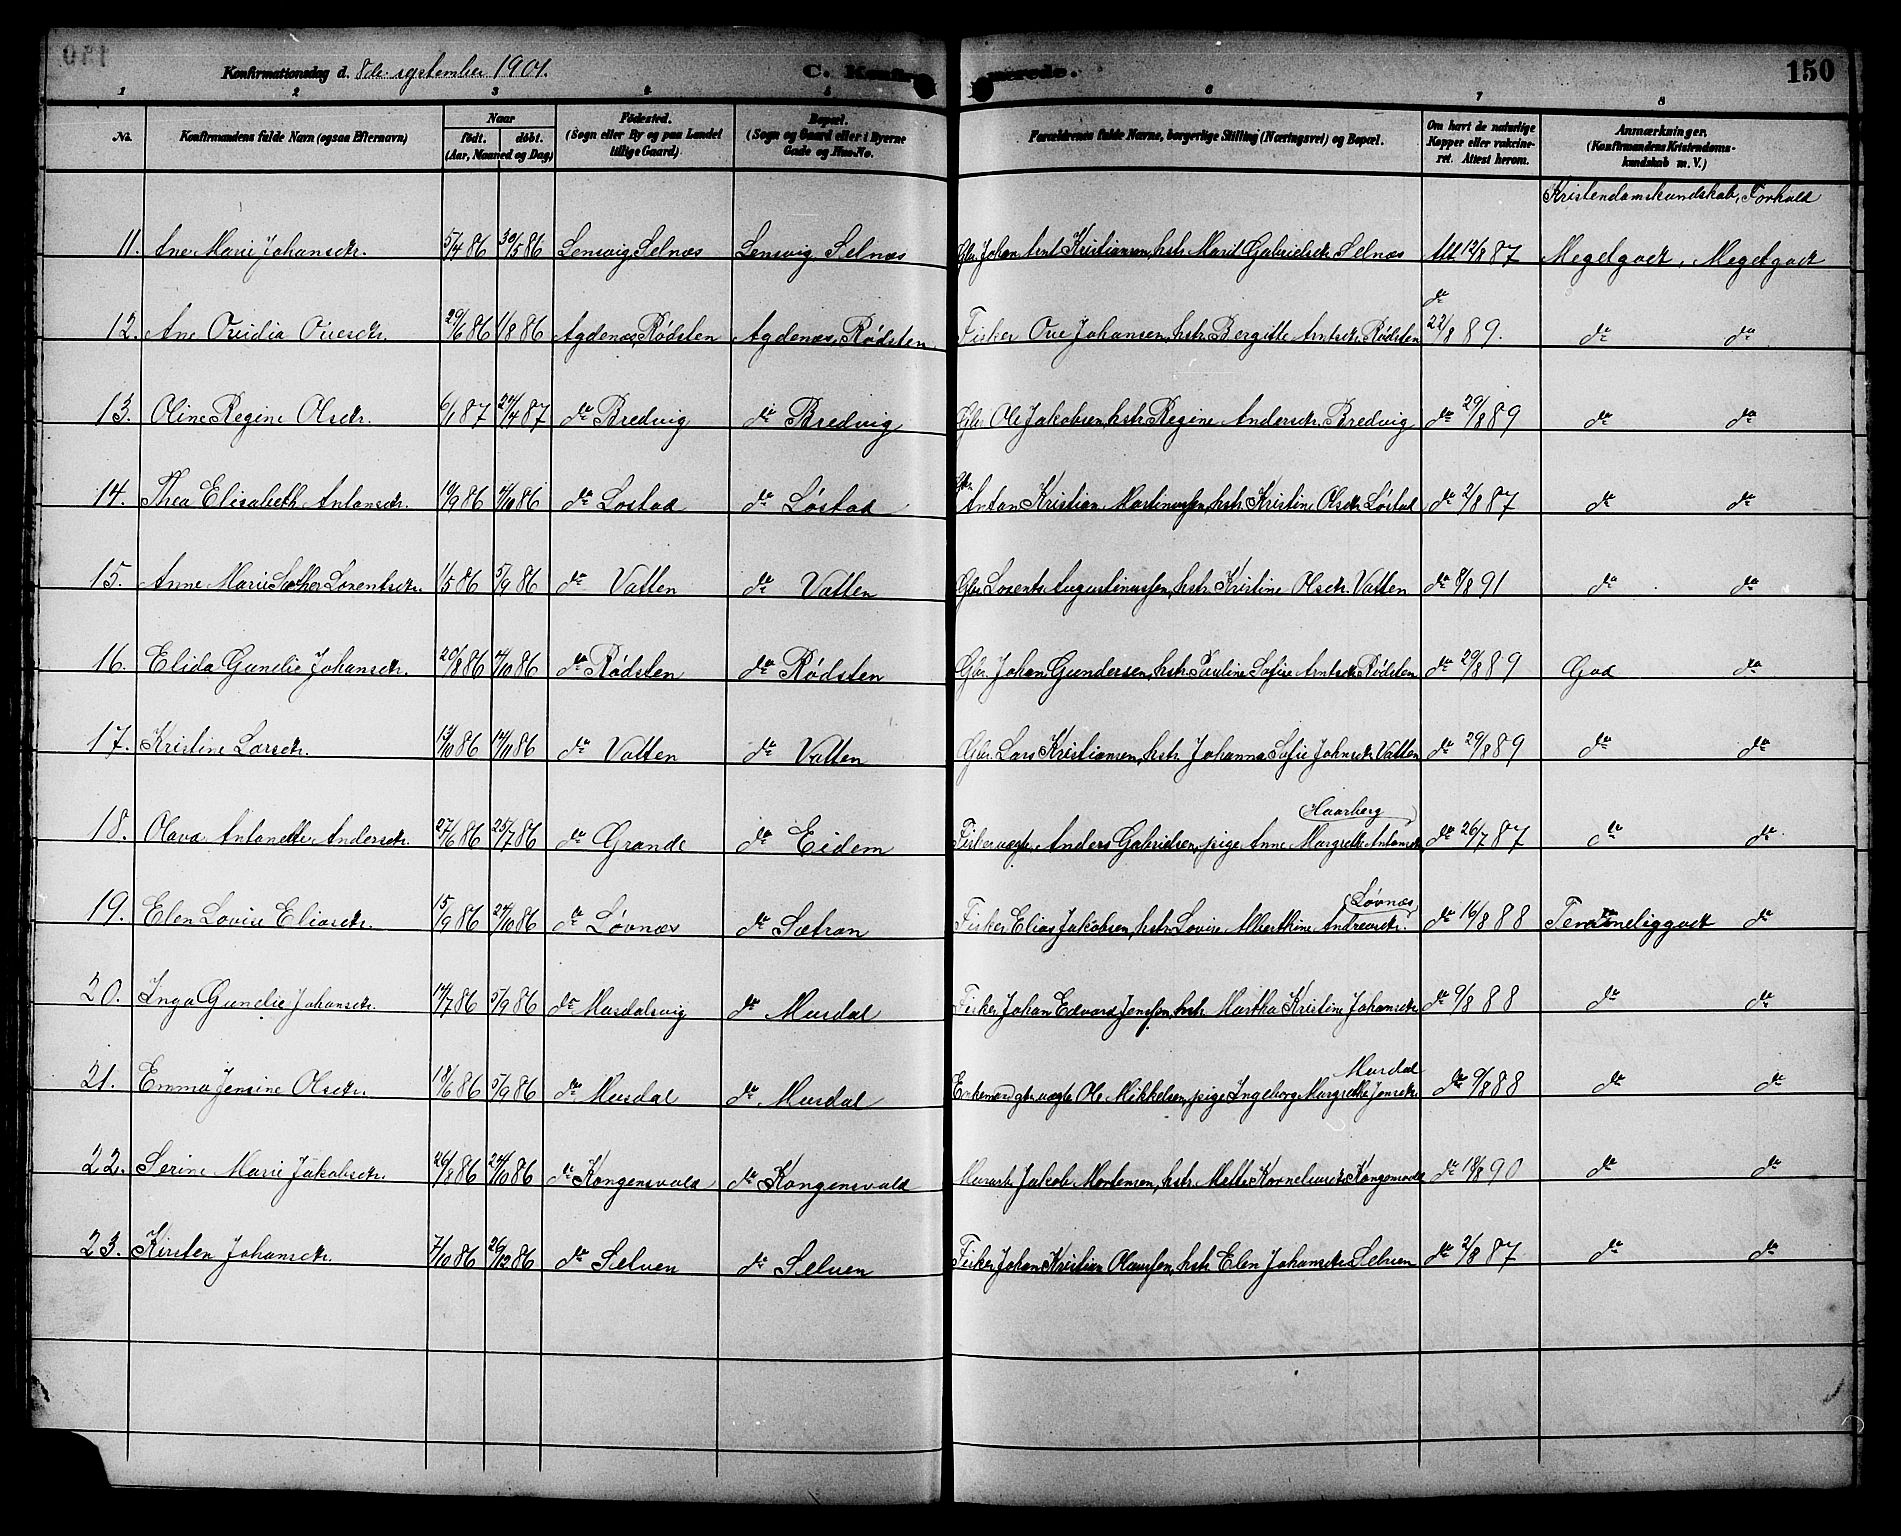 Konfirmationsdag d. 8de september 1901. C. Konfirmerede. 150
1 2 3 4 5 6 7 8
No. Konfirmandens fulde Navn (ogsaa Efternavn) Naar født. døbt. (Aar, Maaned og Dag) Fødested. (Sogn eller By og paa Landet tillige Gaard). Bopæl. (Sogn og Gaard eller i Byerne Gade og Hus-No. Forældrenes fulde Navne, borgerlige Stilling (Næringsvei) og Bopæl. Om havt de naturlige Kopper eller vakcineret. Attest herom. Anmærkninger. (Konfirmandens Kristendomskundskab m. V.)
Kristendomskundskab, Forhold
11. Ane Marie Johansdtr. 5/4 86 30/5 86 Lensvig, Selnæs Lensvig, Selnæs Gbr. Johan Arnt Kristiansen, hstr. Marit Gabrielsdtr. Selnæs Att. 12/8 87 Megetgodt, Megetgodt
12. Ane Ovidia Ovesdtr. 29/6 86 1/8 86 Agdenæs, Rødsten Agdenæs, Rødsten Fisker Ove Johansen, hstr. Bergitte Arntsdtr. Rødsten do 22/8 89. do do
13. Oline Regine Olsdtr. 6/1 87 24/4 87 do Bredvig do Bredvig Gbr. Ole Jakobsen, hstr. Regine Andersdtr. Bredvig do 29/8 89 do do
14. Thea Elisabeth Antonsdtr. 10/9 86 4/10 86 do Løstad do Løstad Gbr. Anton Kristian Martinussen, hstr. Kristine Olsdtr. Løstad do 2/8 87 do do
15. Anne Marie Lorentsdtr. 1/5 86 5/9 86 do Vatten do Vatten Gbr. Lorents Augustinussen, hstr. Kristine Olsdtr. Vatten do 8/8 91 do do
16. Elida Gunelie Johansdtr. 20/8 86 4/10 86 do Rødsten do Rødsten Gbr. Johan Gundersen, hstr. Pauline Sofie Arntsdtr. Rødsten do 29/8 89 God do
17. Kristine Larsdtr. 12/10 86 14/11 86 do Vatten do Vatten Gbr. Lars Kristiansen, hstr. Johanna Sofie Johnsdtr. Vatten do 29/8 89 do do
18. Olava Antonette Andersdtr. 27/6 86 25/7 86 do Grande do Eidem Fisker ugte. Anders Gabrielsen, pige Anne Margrethe Antonsdtr. Haarberg do 26/7 87 do do
19. Elen Lovise Eliasdtr. 15/9 86 24/10 86 do Løvnæs do Sætran Fisker Elias Jakobsen, hstr. Lovise Albertine Andreasdtr. Løvnæs do 16/8 88 Temmeliggodt do
20. Inga Gunelie Johansdtr. 14/7 86 5/9 86 do Mursdalsvig do Mursdal Fisker Johan Edvard Jenssen, hstr. Martha Kristine Johansdtr. do 9/8 88 do do
21. Emma Jensine Olsdtr. 18/6 86 5/9 86 do Mursdal do Mursdal Enkemand gbr. ugte Ole Mikkelsen, pige Ingeborg Margrethe Jonsdtr. Mursdal do 9/8 88 do do
22. Serine Marie Jakobsdtr. 26/8 86 24/10 86 do Kongensvold do Kongensvold Jakob Mortensen, hstr. Mette Korneliusdtr. Kongensvold do 18/8 90 do do
23. Kirsten Johansdtr. 7/10 86 26/12 86 do Selven do Selven Fisker Johan Kristian Olaussen, hstr. Elen Johansdtr. Selven do 2/8 87 do do